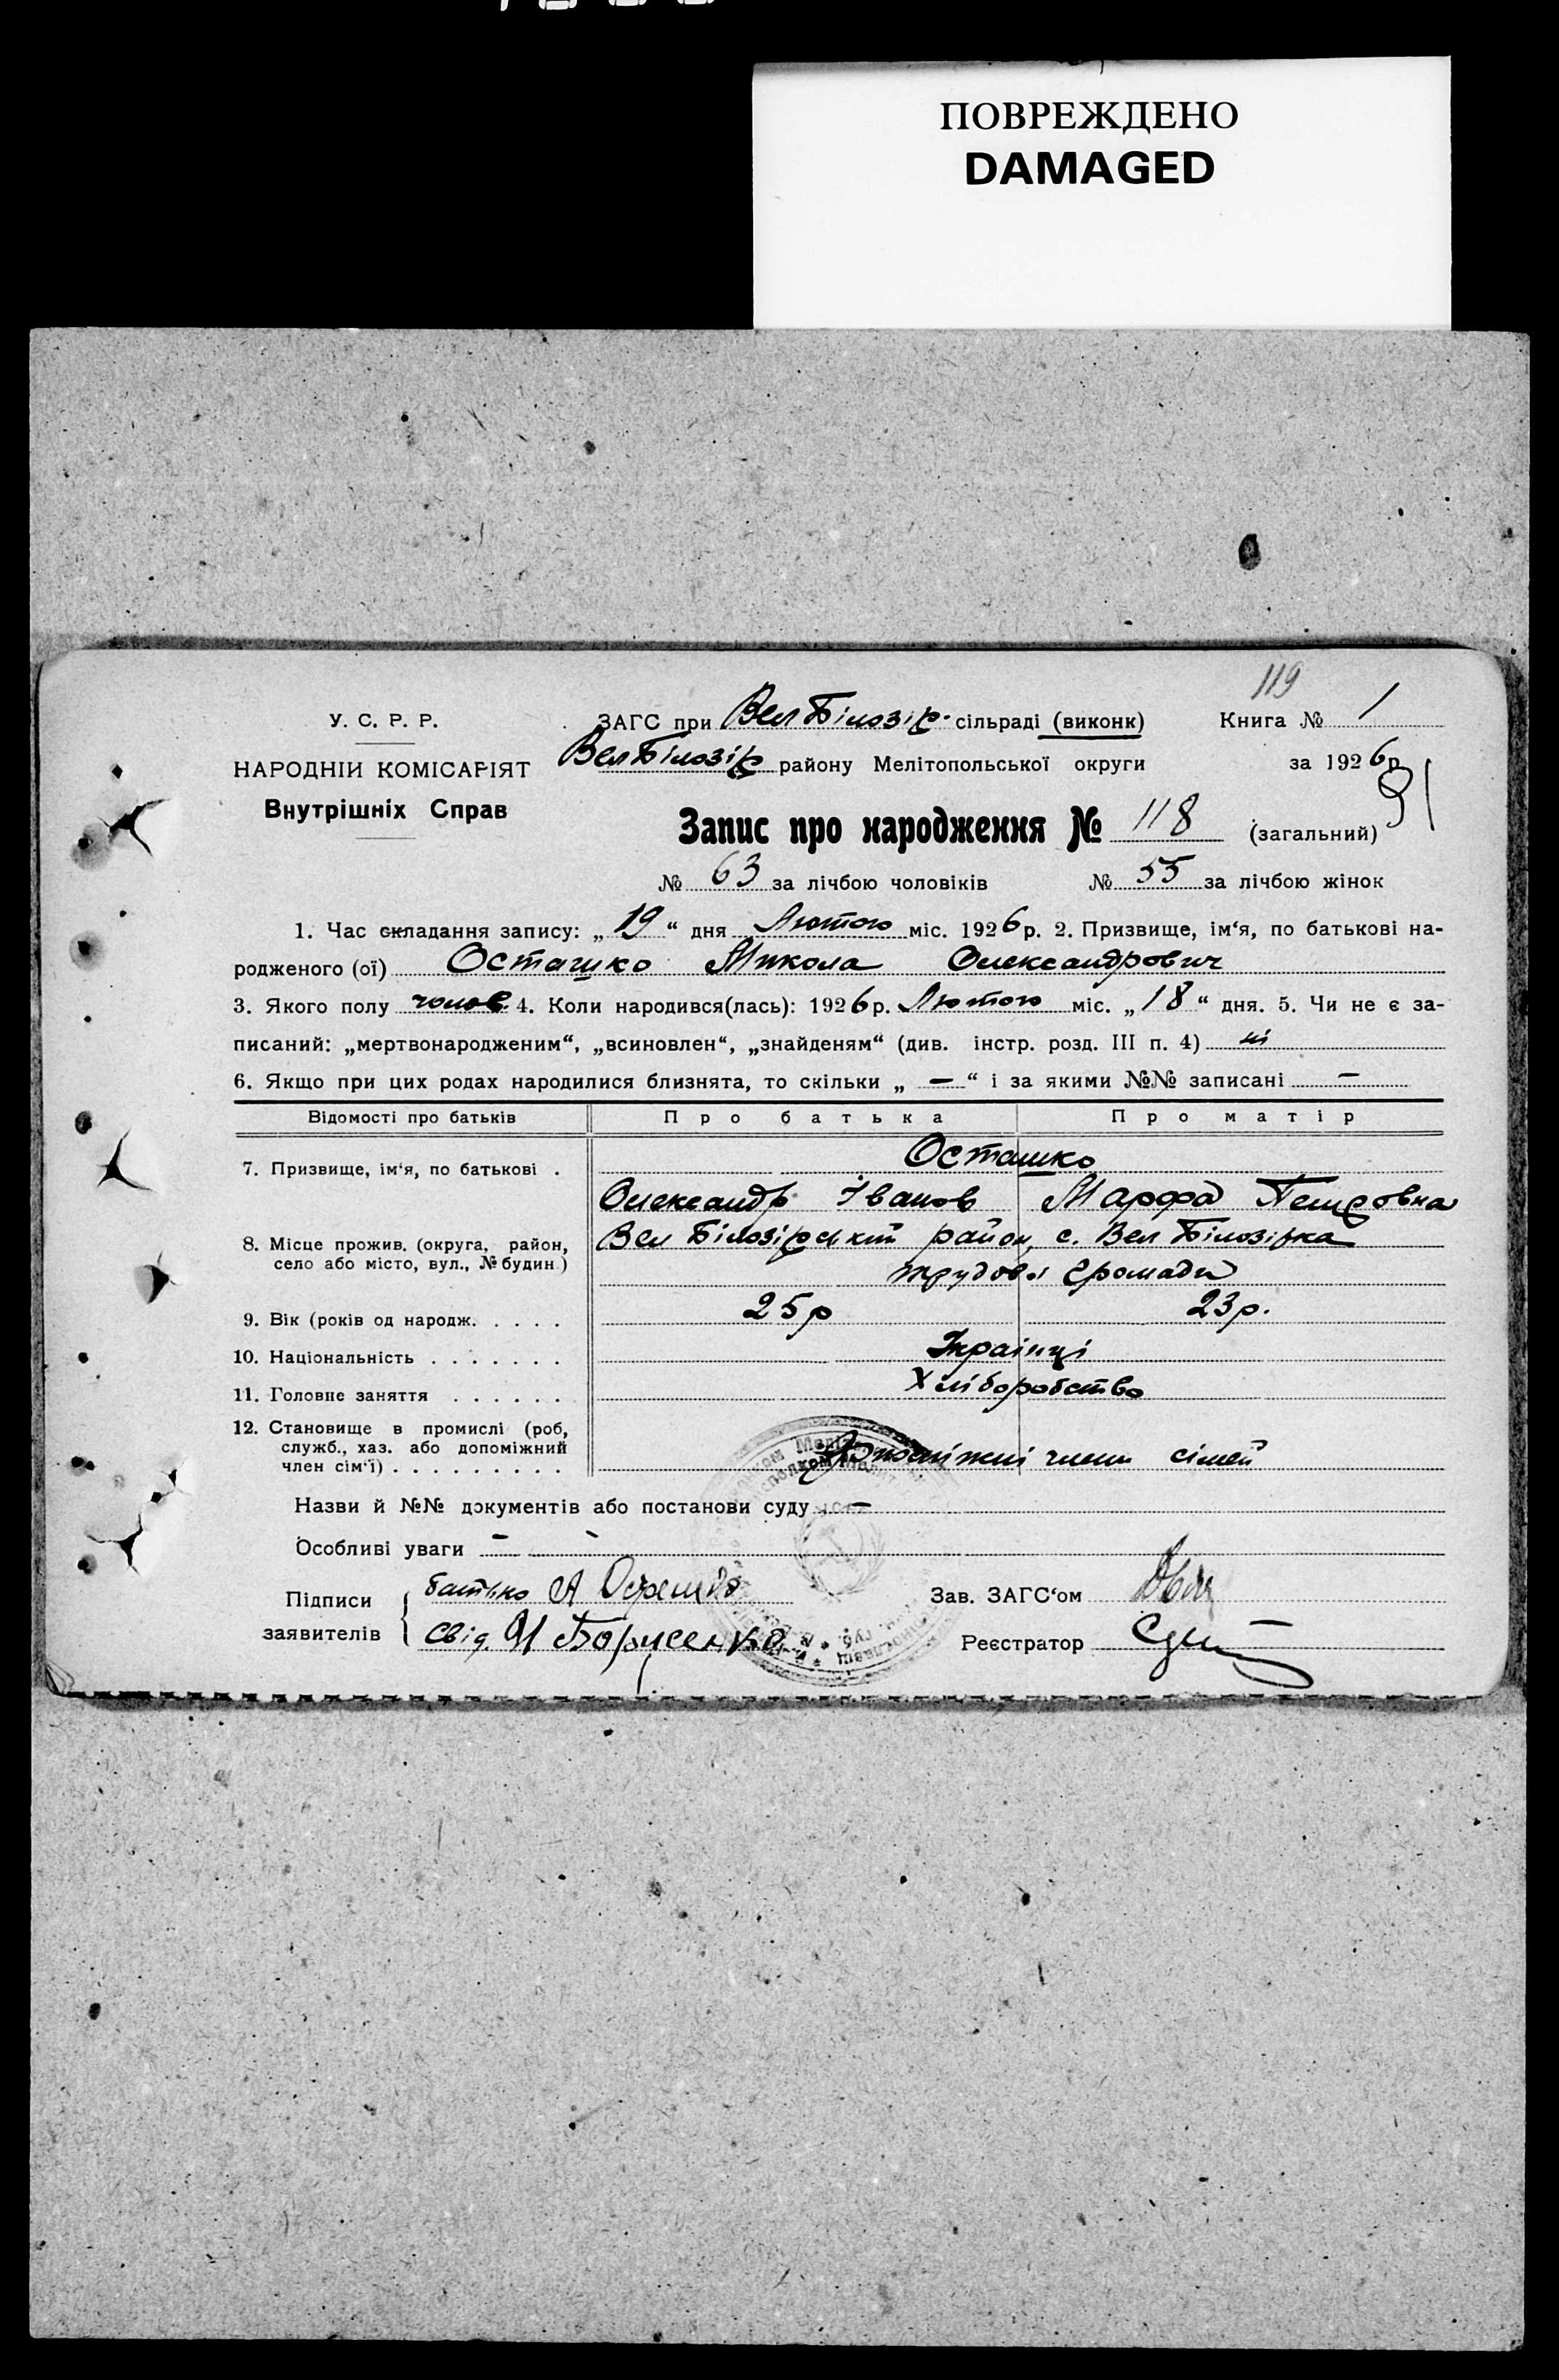 ПОВРЕЖДЕНО
DAMAGED
119
У. С. Р. Р.
ЗАГС при Вел Білозір. сільраді (виконк)
Книга № 1
НАРОДНІЙ КОМІСАРІЯТ
Вел Білозір району Мелітопольської округи
за 1926 р.
Внутрішніх Справ
91
Запис про народження № 118 (загальний)
№ 63 за лічбою чоловіків № 55 за лічбою жінок
1. Час складання запису: „19“ дня Лютого міс. 1926 р. 2. Призвище, ім‘я, по батькові на-
родженого (ої) Осташко Микола Олександрович
3. Якого полу чолов 4. Коли народився(лась): 1926 р. Лютого міс. „18“ дня. 5. Чи не є за-
писаний: „мертвонародженим“, „всиновлен“, „знайденям“ (див. інстр. розд. III п. 4) ні
6. Якщо при цих родах народилися близнята, то скільки „ — “ і за якими №№ записані —
Відомості про батьків Про батька Про матір
7. Призвище, ім‘я, по батькові . Осташко
Олександр Іванов Марфа Петровна
8. Місце прожив. (округа, район, село або місто, вул., № будин.) Вел Білозірський район, с. Вел Білозірка
трудової громади
9. Вік (років од народж. . . . . 25 р 23 р.
10. Національність . . . . . . . Українці
11. Головне заняття . . . . . . Хліборобство
12. Становище в промислі (роб,
служб., хаз. або допоміжний
член сім‘ї) . . . . . . . . . Допоміжні члени сімей
Назви й №№ документів або постанови суду —
Особливі уваги —
Підписи заявителів
батько А Осташко
свід. И Борисенко
Зав. ЗАГС‘ом
Реєстратор